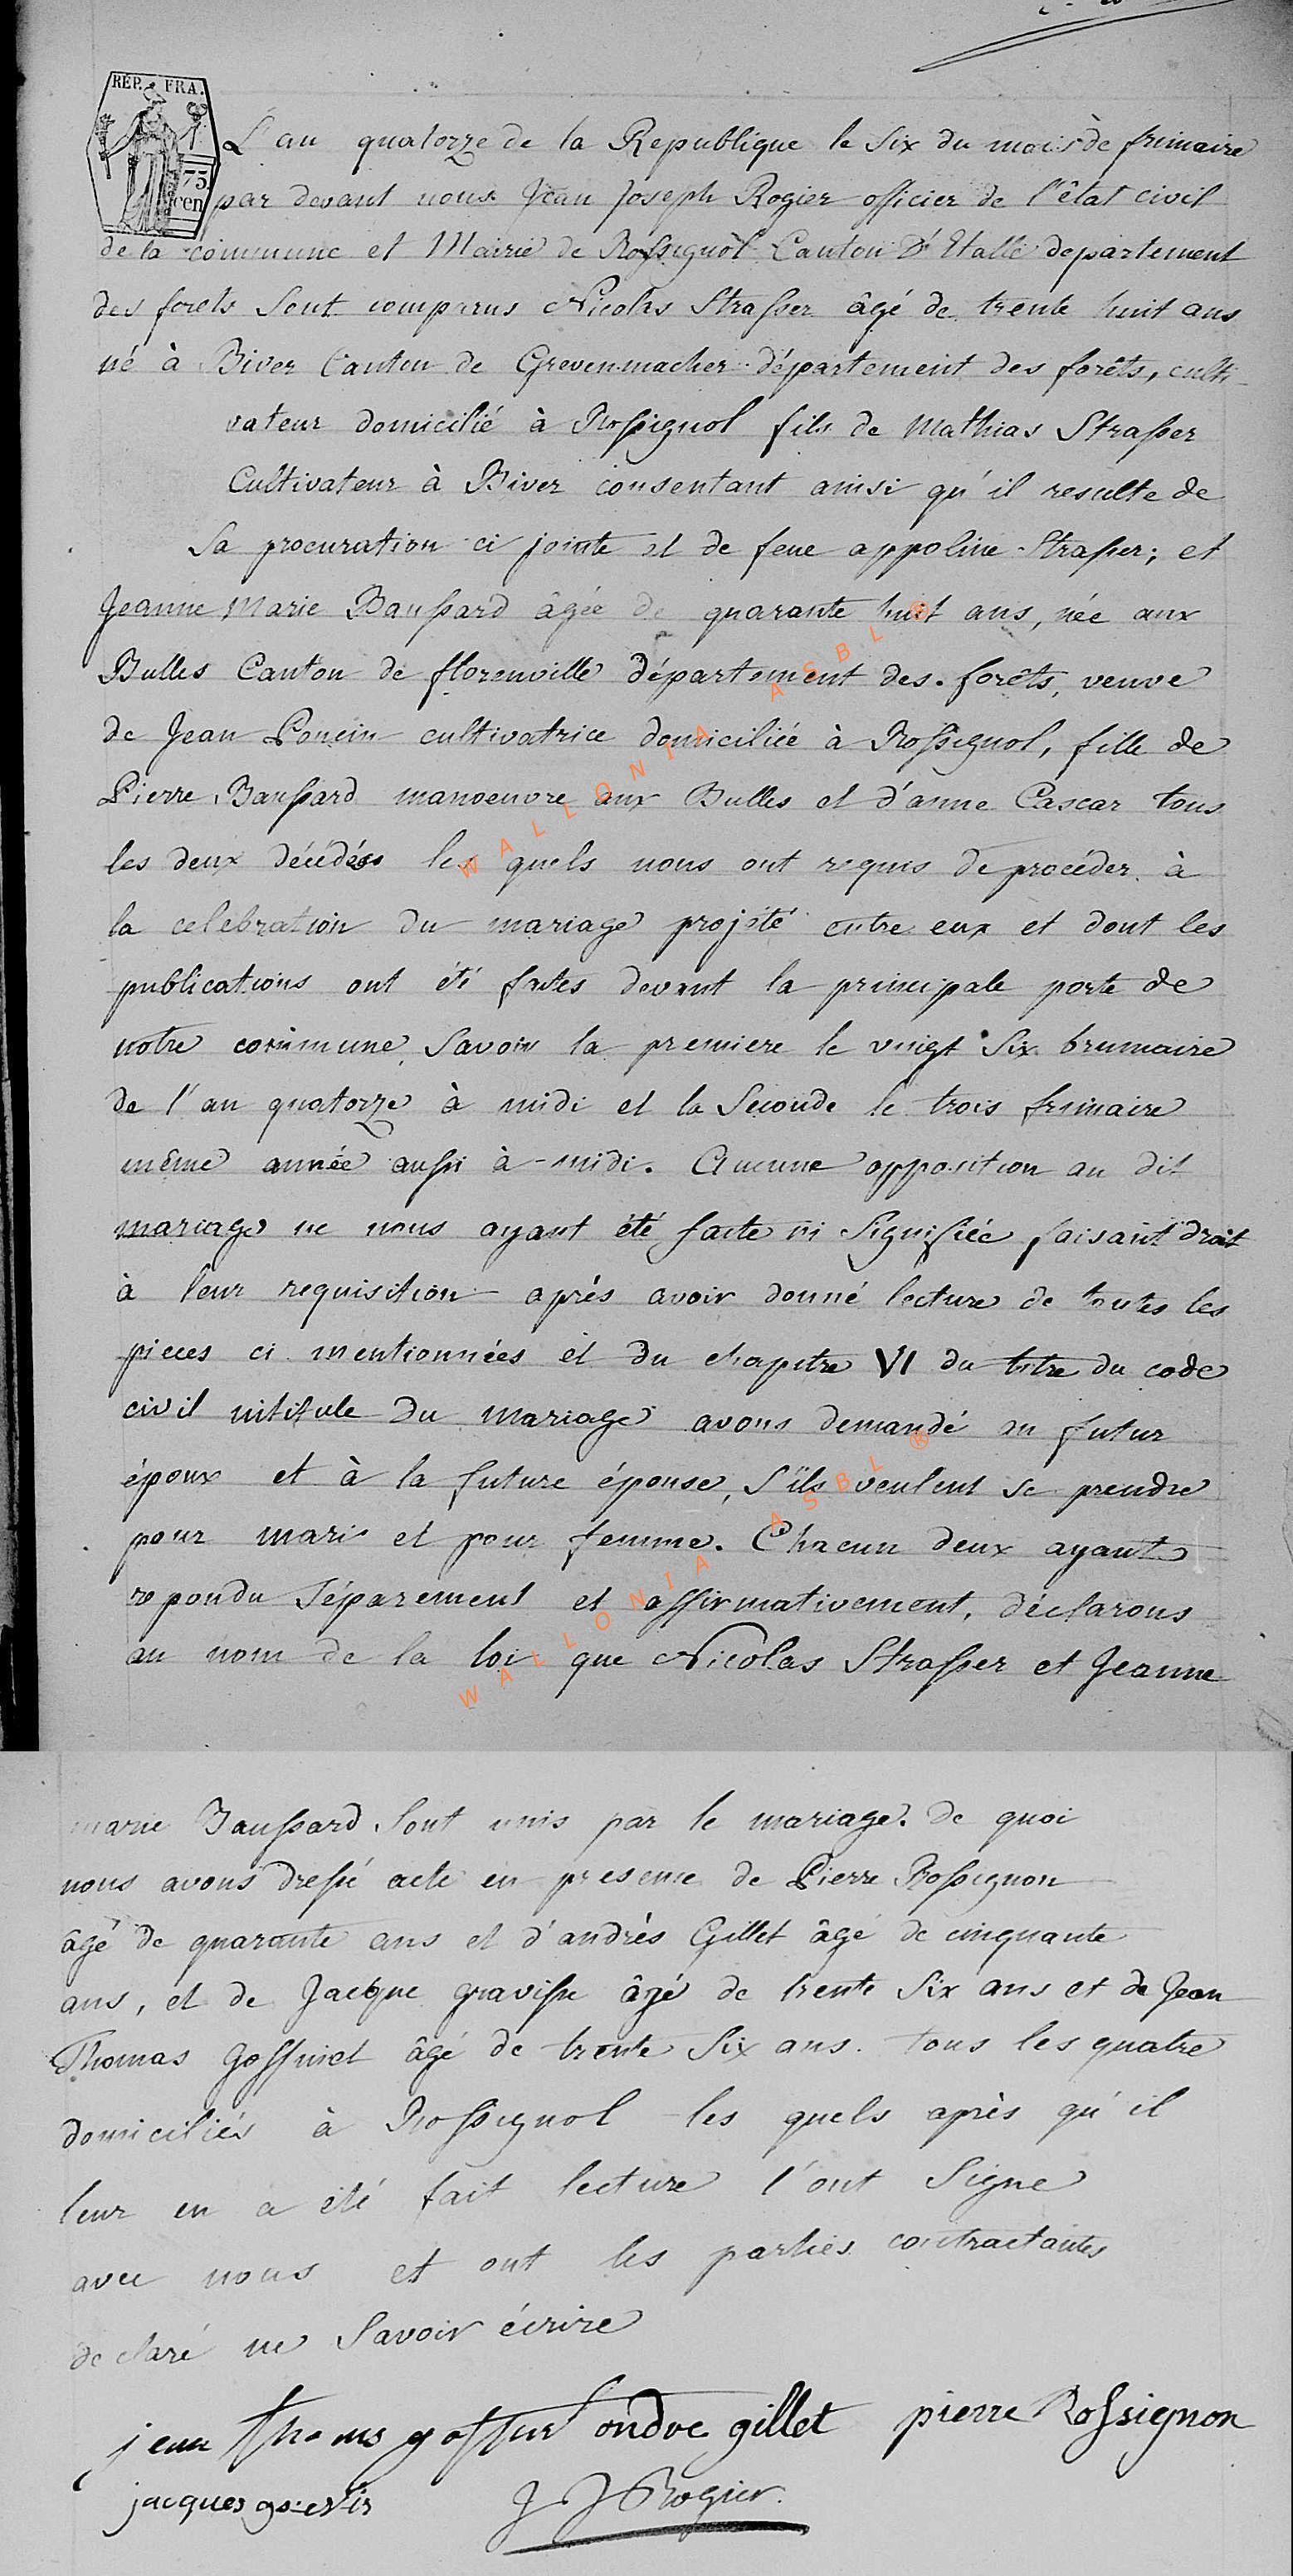 RÉP. FRA.
75
cen
L'an quatorze de la Republique le Six du mois de frimaire
par devant nous Jean Joseph Rogier officier de l'état civil
de la commune et Mairie de Rossignol Canton D'Etalle departement
des forets Sont comparus Nicolas Strasser âgé de trente huit ans
né à Biver Canton de Grevenmacher département des forêts, culti-
vateur domicilié à Rossignol fils de Mathias Strasser
Cultivateur à Biver consentant ainsi qu'il resulte de
Sa procuration ci jointe et de feue appoline Strasser; et
Jeanne Marie Baussard âgée de quarante huit ans, née aux
Bulles Canton de florenville département des forêts, veuve
de Jean Poncin cultivatrice domiciliée à Rossignol, fille de
Pierre Baussard manoeuvre aux Bulles et d'anne Cascar tous
les deux décédés les quels nous ont requis de procéder à
la celebration du mariage projété entre eux et dont les
publications ont été faites devant la principale porte de
notre commune Savoir la premiere le vingt Six brumaire
de l'an quatorze à midi et la Seconde le trois frimaire
même année aussi à midi. Aucune opposition au dit
mariage ne nous ayant été faite ni Signifiée faisant droit
à leur requisition après avoir donné lecture de toutes les
pieces ci mentionnées et du chapitre VI du titre du code
civil intitule Du Mariage avons demandé au futur
époux et à la future épouse, S'ils veulent se prendre
pour mari et pour femme. Chacun deux ayant
repondu Séparement et affirmativement, déclarons
au nom de la loi que Nicolas Strasser et Jeanne
marie Baussard Sont unis par le mariage. De quoi
nous avons dressé acte en presence de Pierre Rossignon
âgé de quarante ans et d'andrés Gillet âgé de cinquante
ans, et de Jacque gravisse âgé de trente Six ans et de Jean
Thomas Goffinet âgé de trente Six ans. tous les quatre
domiciliés à Rossignol les quels après qu'il
leur en a été fait lecture l'ont Signe
avec nous et ont les parties contractantes
déclaré ne Savoir écrire
jean thomas andre gillet pierre Rossignon
jacques J J Rogier
WALLONIA ASBL ®
WALLONIA ASBL ®